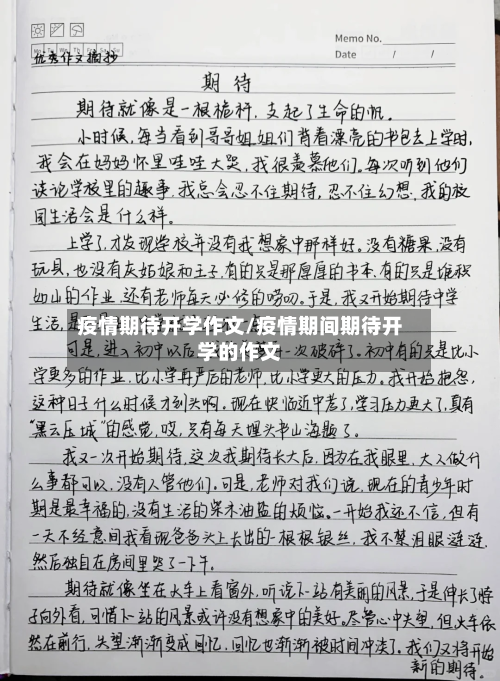 Memo No.
Mo Tu We Th Fr Sa Su
Date / /
优秀作文摘抄
期待
期待就像是一根桅杆,支起了生命的帆。
小时候,每当看到哥哥姐姐们背着漂亮的书包去上学时,
我会在妈妈怀里哇哇大哭,我很羡慕他们。每次听到他们
谈论学校里的趣事,我总会忍不住期待,忍不住幻想,我的校
园生活会是什么样。
上学了,才发现学校并没有我想象中那样好。没有糖果,没有
玩具,也没有灰姑娘和王子,有的只是那厚厚的书本,有的只是堆积
如山的作业,还有老师每天必修的唠叨。于是,我又开始期待中学
生活,是
疫情期待开学作文/疫情期间期待开
学的作文
可是,进入初中以后 一次破碎了。初中有的只是比小
学更多的作业,比小学再严厉的老师,比小学更大的压力。我开始抱怨,
这种日子什么时候才到头啊。现在快临近中考了,学习压力更大了,真有
“黑云压城”的感觉,哎,只有每天埋头书山海题了。
我又一次开始期待,这次我期待长大后,因为在我眼里,大人做什
么事都可以,没有人管他们。可是,老师对我们说,现在的青少年时
期是最幸福的,没有生活的柴米油盐的烦恼。一开始我还不信,但有
一天不经意间我看现爸爸头上长出的一根根银丝,我不禁泪眼涟涟,
然后独自在房间里哭了一下午。
期待就像坐在火车上看窗外,听说下一站有美丽的风景,于是伸长了脖
子向外看,可惜下一站的风景或许没有想象中的美好。尽管心中失望,但火车依
然在前行,失望渐渐变成回忆,回忆也渐渐被时间冲淡了。我们又将开始
新的期待。